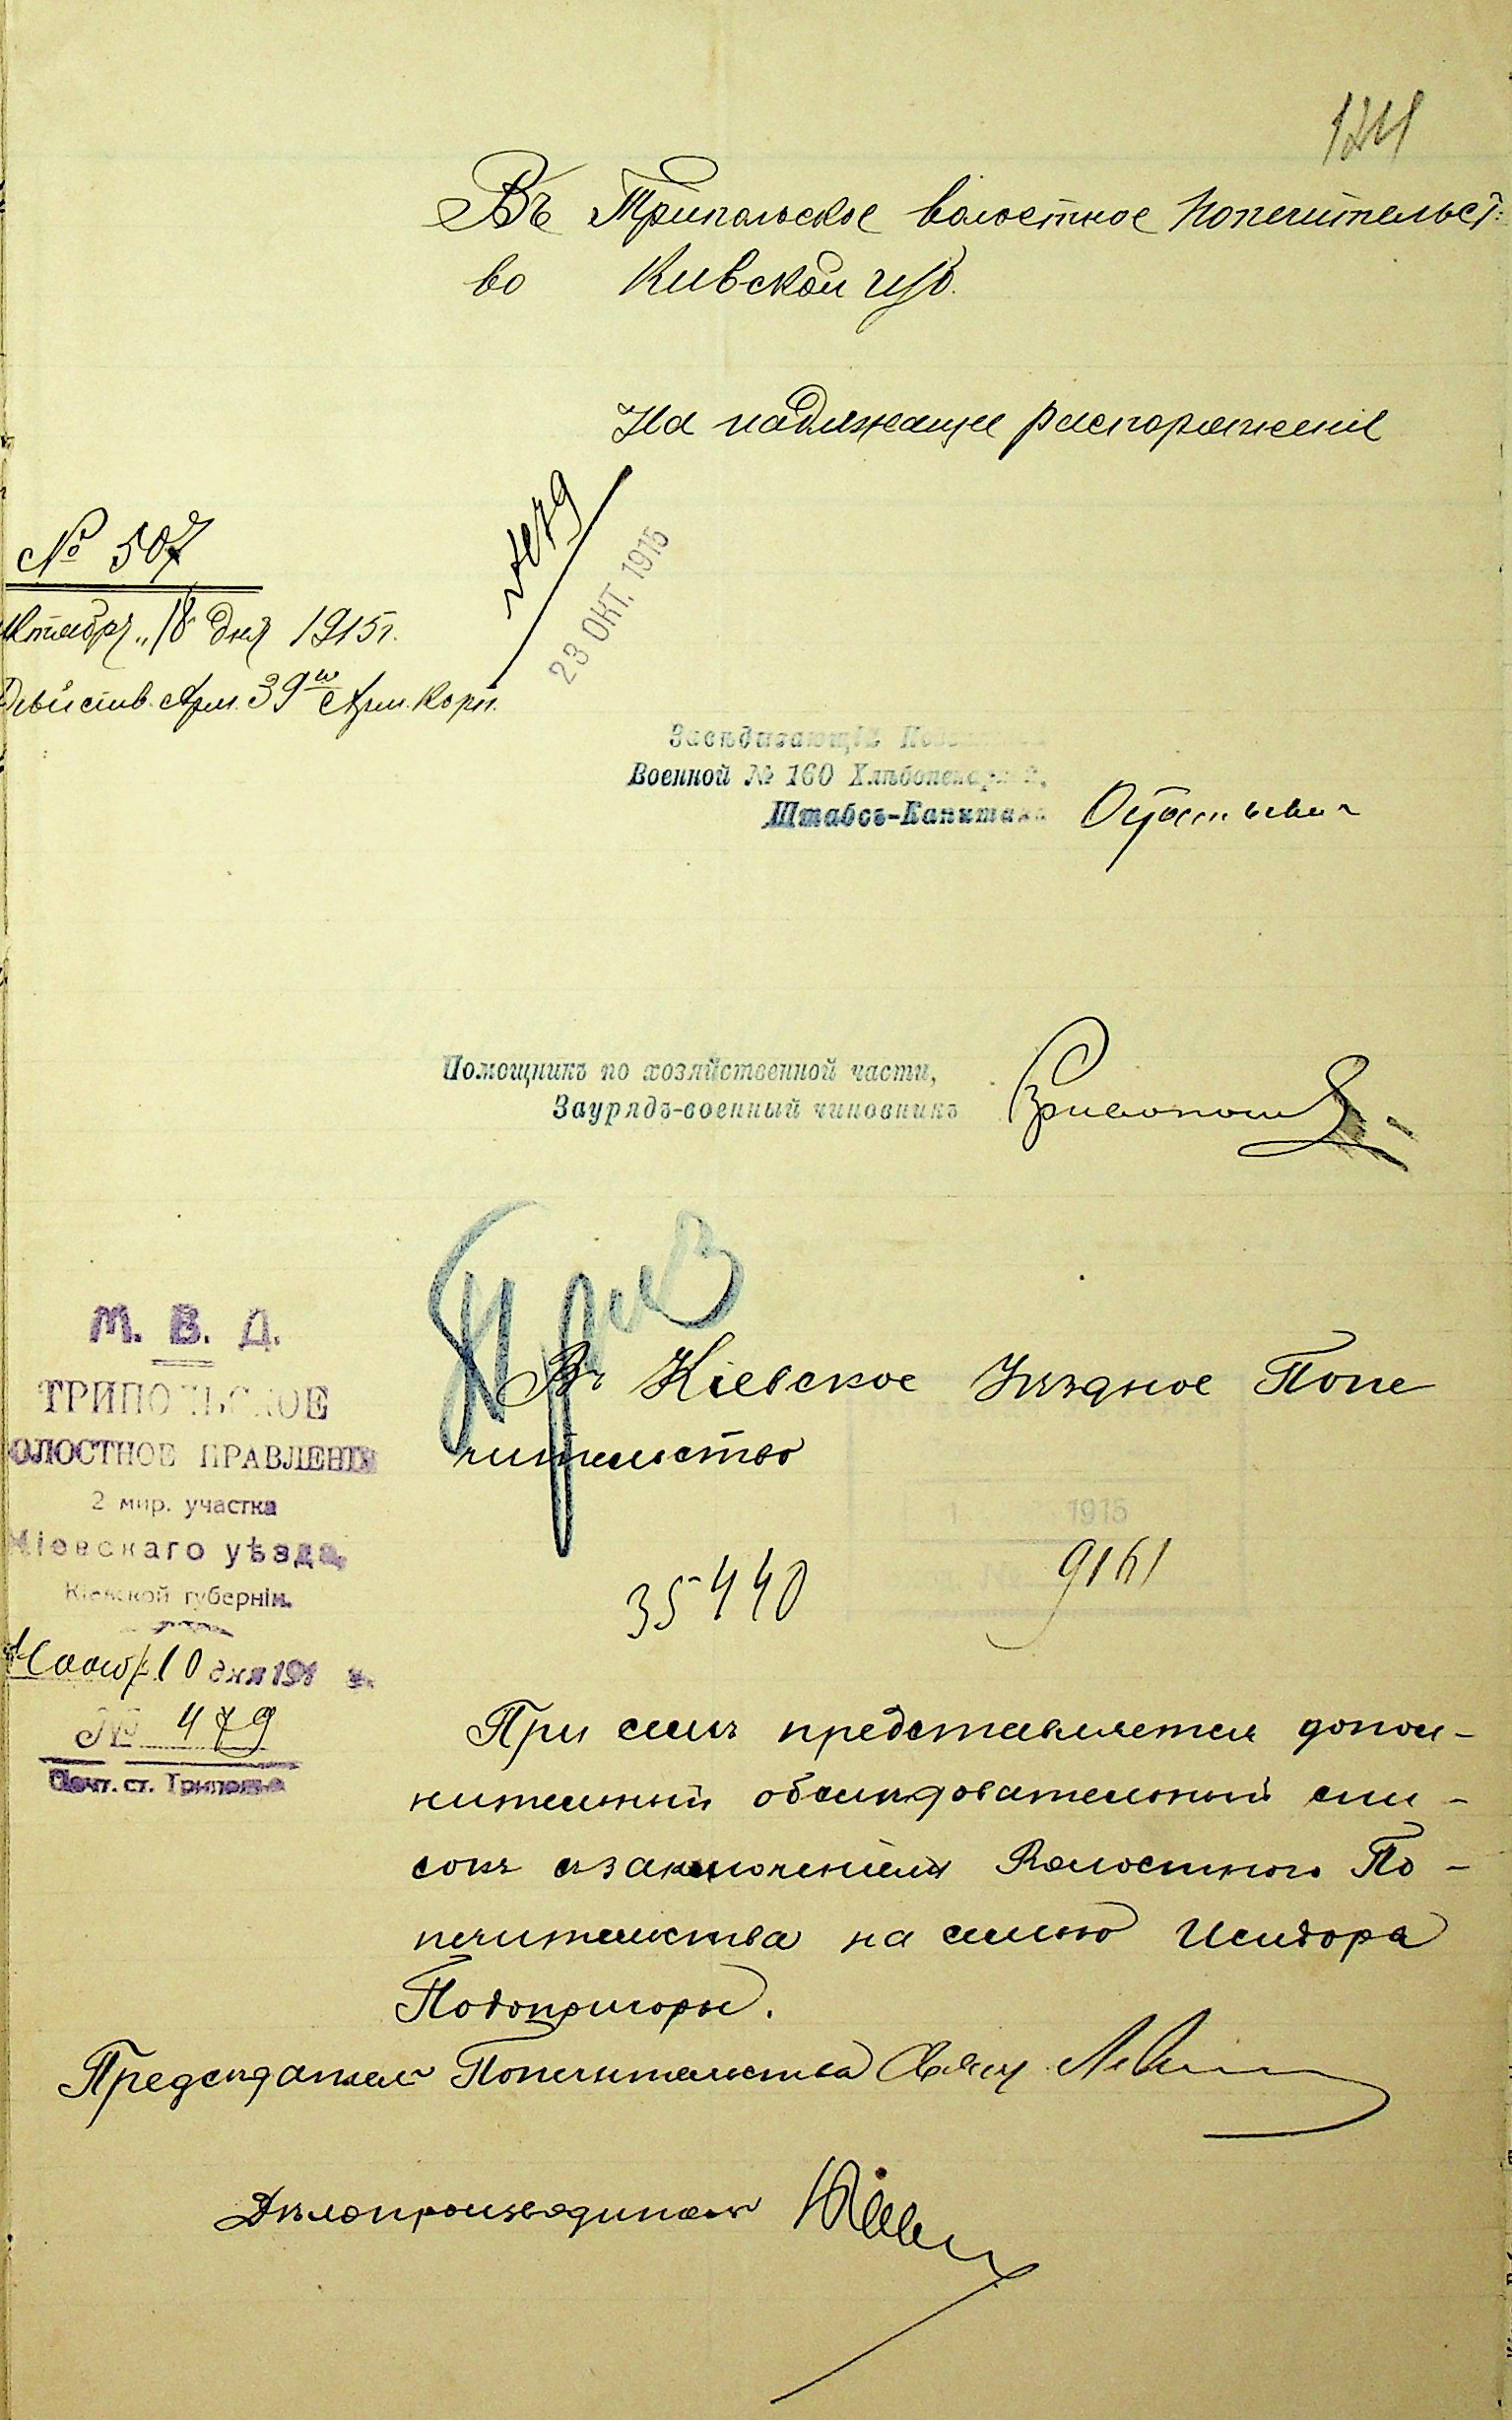 124
Въ Трипольское волостное попечительст-
во Киевской губ.
На надлежащее распоряжение
№ 479
23 ОКТ. 1915
№ 507
октября „18 дня 1915 г.
Действ. Арм. 39го Арм. Корп.
Завѣдывающій
Военной № 160 Хлѣбопекарней,
Штабсъ-Капитанъ
Помощникъ по хозяйственной части,
Заурядъ-военный чиновникъ
М. В. Д.
ТРИПОЛЬСКОЕ
ВОЛОСТНОЕ ПРАВЛЕНІЕ
2 мир. участка
Кіевскаго уѣзда,
Кіевской губерніи.
10 дня 191 г.
№ 479
Почт. ст. Триполье
Въ Кіевское Уѣздное Попе
чительство
1915
35440
№ 9161
При семъ представляется допол-
нительный обслѣдовательный спи-
сокъ съ заключеніемъ Волостного По-
печительства на семью Исидора
Подопригоры.
Предсѣдатель Попечительства Свящ.
Дѣлопроизводитель